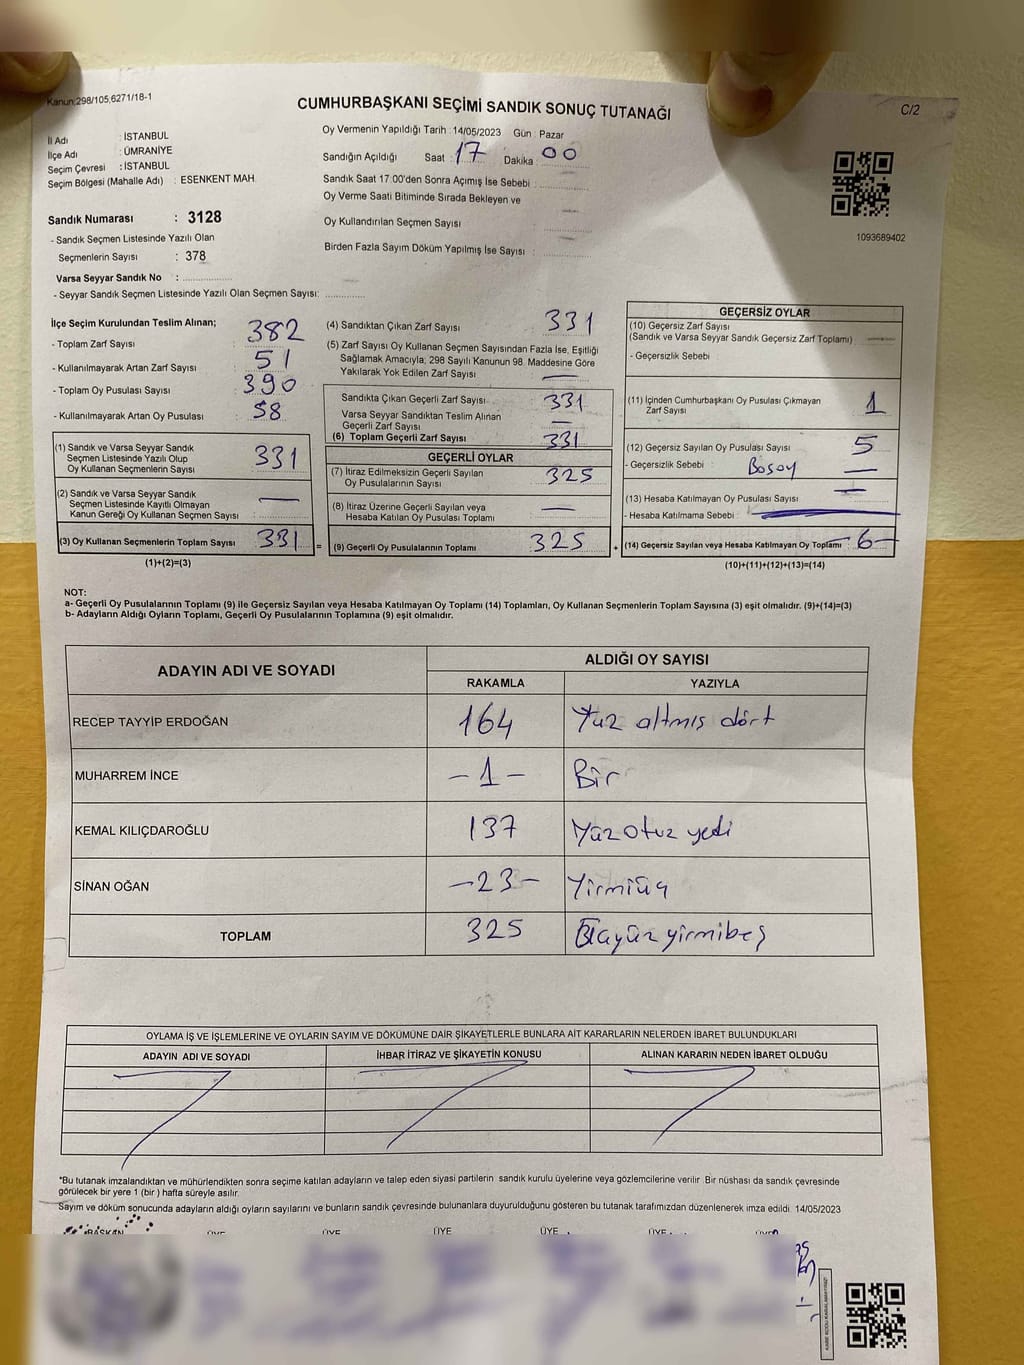 Kanun:298/105,6271/18-1
CUMHURBAŞKANI SEÇİMİ SANDIK SONUÇ TUTANAĞI
C/2
İl Adı : İSTANBUL
İlçe Adı : ÜMRANİYE
Seçim Çevresi : İSTANBUL
Seçim Bölgesi (Mahalle Adı) : ESENKENT MAH.
Sandık Numarası : 3128
- Sandık Seçmen Listesinde Yazılı Olan
Seçmenlerin Sayısı : 378
Varsa Seyyar Sandık No :
- Seyyar Sandık Seçmen Listesinde Yazılı Olan Seçmen Sayısı:
Oy Vermenin Yapıldığı Tarih : 14/05/2023 Gün : Pazar
Sandığın Açıldığı Saat : 17 Dakika : 00
Sandık Saat 17:00'den Sonra Açımış İse Sebebi :
Oy Verme Saati Bitiminde Sırada Bekleyen ve
Oy Kullandırılan Seçmen Sayısı :
Birden Fazla Sayım Döküm Yapılmış İse Sayısı :
1093689402
İlçe Seçim Kurulundan Teslim Alınan;
- Toplam Zarf Sayısı : 382
- Kullanılmayarak Artan Zarf Sayısı : 51
- Toplam Oy Pusulası Sayısı : 390
- Kullanılmayarak Artan Oy Pusulası : 58
(1) Sandık ve Varsa Seyyar Sandık
Seçmen Listesinde Yazılı Olup
Oy Kullanan Seçmenlerin Sayısı : 331
(2) Sandık ve Varsa Seyyar Sandık
Seçmen Listesinde Kayıtlı Olmayan
Kanun Gereği Oy Kullanan Seçmen Sayısı : —
(3) Oy Kullanan Seçmenlerin Toplam Sayısı : 331 =
(1)+(2)=(3)
(4) Sandıktan Çıkan Zarf Sayısı : 331
(5) Zarf Sayısı Oy Kullanan Seçmen Sayısından Fazla İse, Eşitliği
Sağlamak Amacıyla; 298 Sayılı Kanunun 98. Maddesine Göre
Yakılarak Yok Edilen Zarf Sayısı : —
Sandıkta Çıkan Geçerli Zarf Sayısı : 331
Varsa Seyyar Sandıktan Teslim Alınan
Geçerli Zarf Sayısı : —
(6) Toplam Geçerli Zarf Sayısı : 331
GEÇERLİ OYLAR
(7) İtiraz Edilmeksizin Geçerli Sayılan
Oy Pusulalarının Sayısı : 325
(8) İtiraz Üzerine Geçerli Sayılan veya
Hesaba Katılan Oy Pusulası Toplamı : —
(9) Geçerli Oy Pusulalarının Toplamı : 325 +
GEÇERSİZ OYLAR
(10) Geçersiz Zarf Sayısı
(Sandık ve Varsa Seyyar Sandık Geçersiz Zarf Toplamı) : —
- Geçersizlik Sebebi :
(11) İçinden Cumhurbaşkanı Oy Pusulası Çıkmayan
Zarf Sayısı : 1
(12) Geçersiz Sayılan Oy Pusulası Sayısı : 5
- Geçersizlik Sebebi : —
(13) Hesaba Katılmayan Oy Pusulası Sayısı : —
- Hesaba Katılmama Sebebi :
(14) Geçersiz Sayılan veya Hesaba Katılmayan Oy Toplamı : -6-
(10)+(11)+(12)+(13)=(14)
NOT:
a- Geçerli Oy Pusulalarının Toplamı (9) ile Geçersiz Sayılan veya Hesaba Katılmayan Oy Toplamı (14) Toplamları, Oy Kullanan Seçmenlerin Toplam Sayısına (3) eşit olmalıdır. (9)+(14)=(3)
b- Adayların Aldığı Oyların Toplamı, Geçerli Oy Pusulalarının Toplamına (9) eşit olmalıdır.
ADAYIN ADI VE SOYADI
ALDIĞI OY SAYISI
RAKAMLA YAZIYLA
RECEP TAYYİP ERDOĞAN 164 Yüz altmış dört
MUHARREM İNCE -1- Bir
KEMAL KILIÇDAROĞLU 137 Yüz otuz yedi
SİNAN OĞAN -23- Yirmiüç
TOPLAM 325 Üçyüzyirmibeş
OYLAMA İŞ VE İŞLEMLERİNE VE OYLARIN SAYIM VE DÖKÜMÜNE DAİR ŞİKAYETLERLE BUNLARA AİT KARARLARIN NELERDEN İBARET BULUNDUKLARI
ADAYIN ADI VE SOYADI İHBAR İTİRAZ VE ŞİKAYETİN KONUSU ALINAN KARARIN NEDEN İBARET OLDUĞU
*Bu tutanak imzalandıktan ve mühürlendikten sonra seçime katılan adayların ve talep eden siyasi partilerin sandık kurulu üyelerine veya gözlemcilerine verilir. Bir nüshası da sandık çevresinde
görülecek bir yere 1 (bir) hafta süreyle asılır.
Sayım ve döküm sonucunda adayların aldığı oyların sayılarını ve bunların sandık çevresinde bulunanlara duyurulduğunu gösteren bu tutanak tarafımızdan düzenlenerek imza edildi. 14/05/2023
BAŞKAN ÜYE ÜYE ÜYE ÜYE ÜYE ÜYE